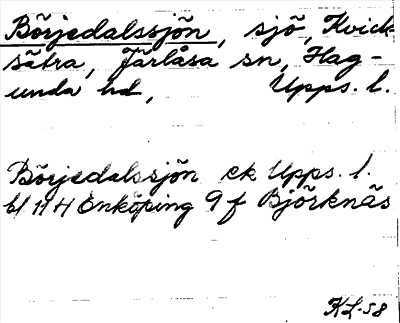 Börjedalssjön, sjö, Kvick-
sätra, Järlåsa sn, Hag-
unda hd, Upps. l.
Börjedalssjön ek Upps. l.
bl 11 H Enköping 9 f Björknäs
KL-58